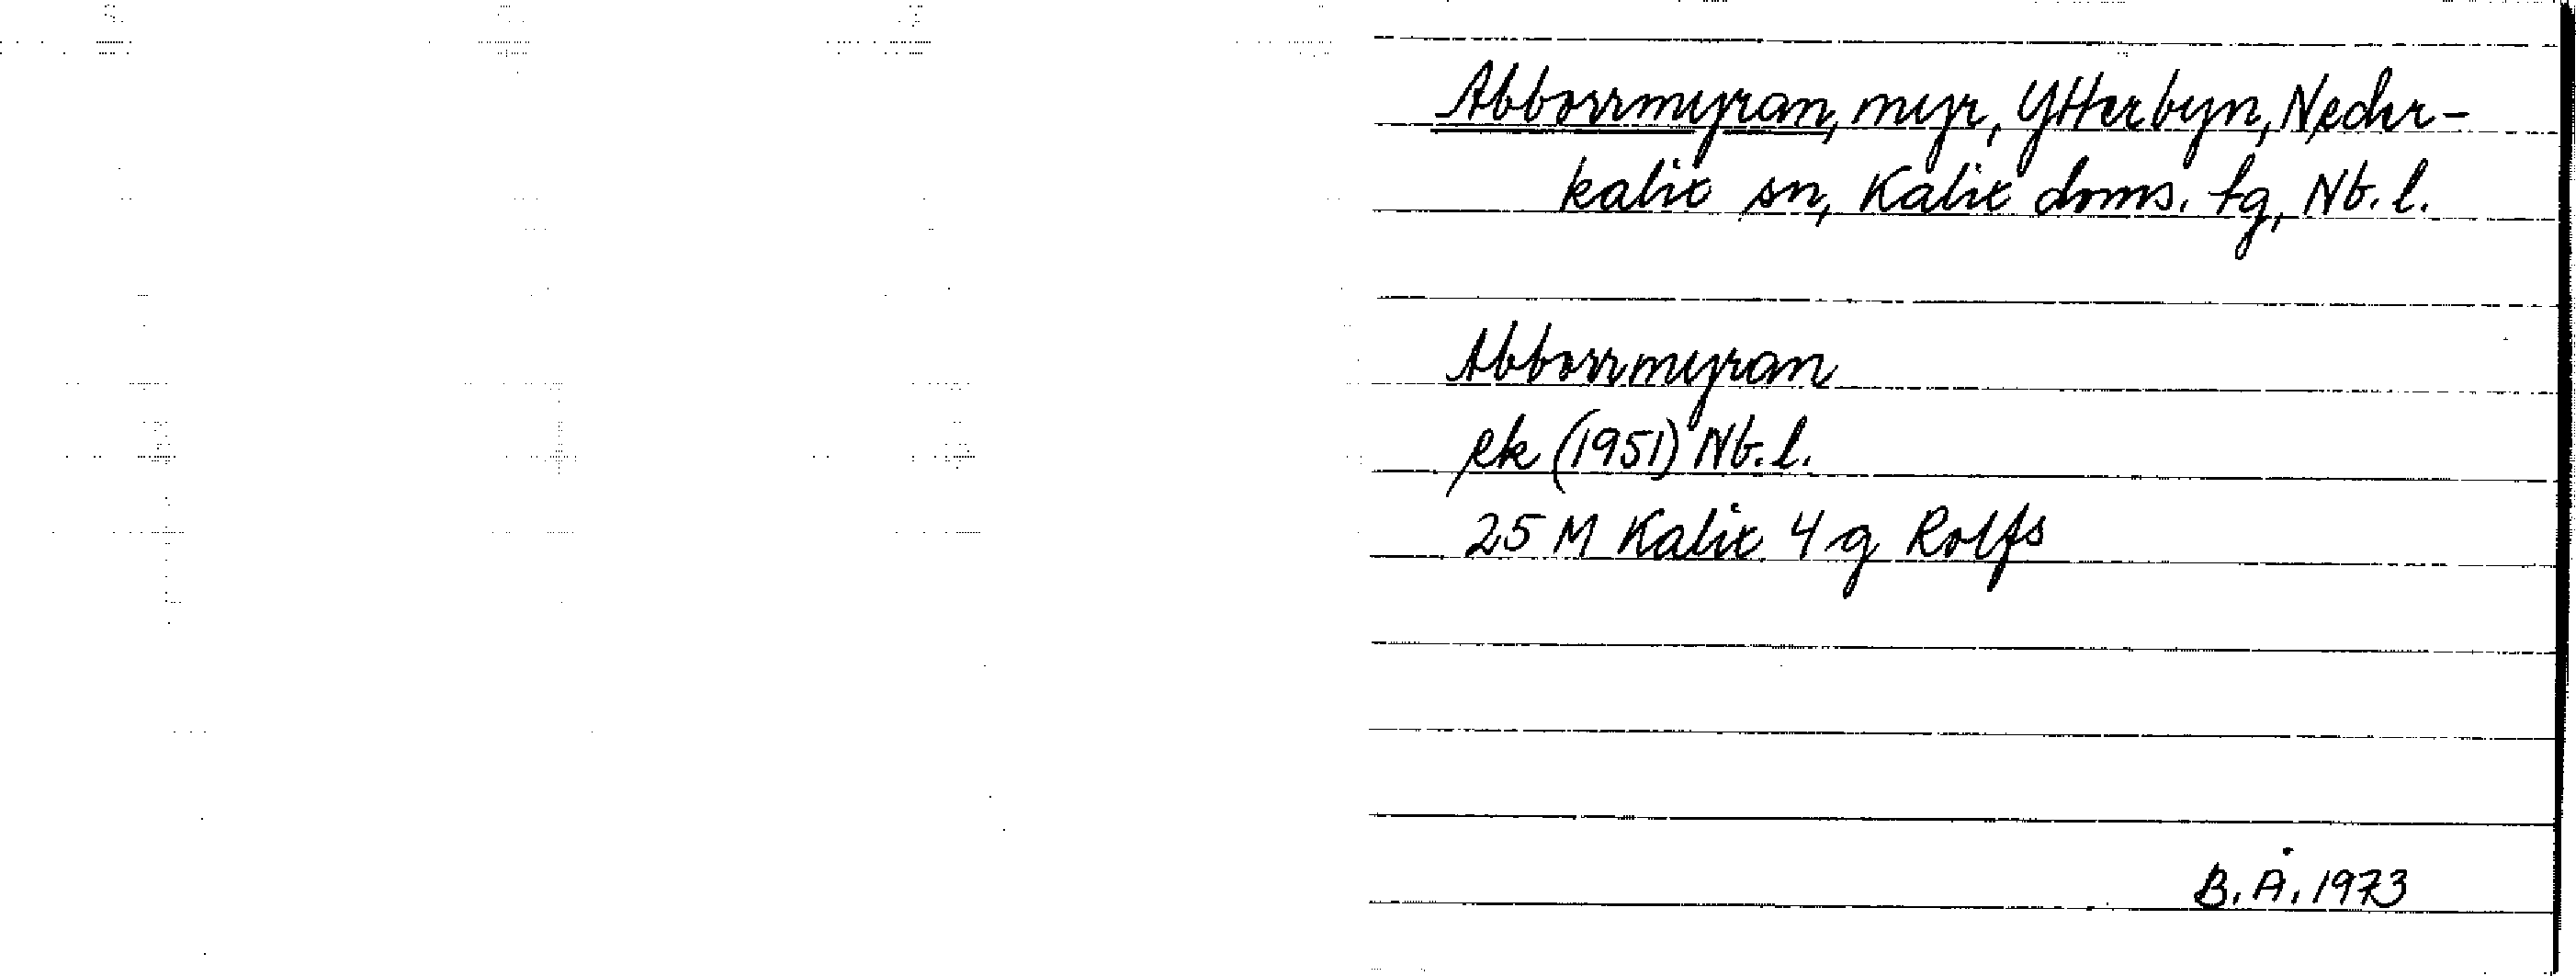 Abborrmyran, myr, Ytterbyn, Neder-
kalix sn, Kalix doms. tg, Nb. l.
Abborrmyran
ek (1951) Nb. l.
25 M Kalix 4 g Rolfs
B. Å. 1973